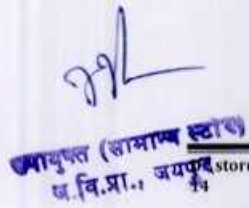 उपायुक्त (सामान्य स्टोर)
ज.वि.प्रा., जयपुर store
14